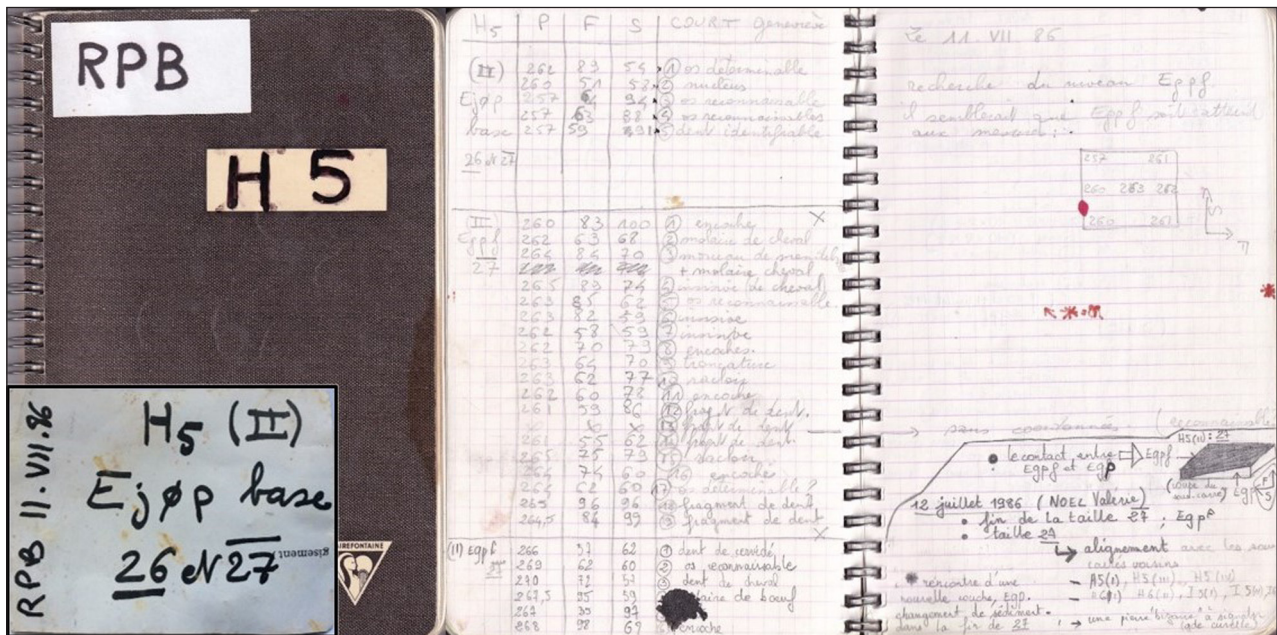 RPB
H 5
RPB 11.VII.86
H5 (II)
Ejøp base
26 et 27
gisement)
IREFONTAINE
H5 P F S COURT Geneviève
(II) 262 83 54 ① os déterminable
263 51 58 ② nucleus
Ejøp 257 94 ③ os reconnaissable
257 63 88 ④ os reconnaissables
base 257 59 91 ⑤ dent identifiable
26 et 27
(II) 260 83 100 ① encoche
Egpf 262 63 68 ② molaire de cheval
27 264 84 70 ③ morceau de
+ molaire cheval
265 89 74 ④ incisive de cheval
263 85 62 ⑤ os reconnaissable
263 82 59 ⑥ incisive
262 58 59 ⑦
262 70 79 ⑧ encoches.
64 70 ⑨ troncature
263 62 77 ⑩ racloir
262 60 78 11 encoche
261 59 86 12 fragt de dent.
x x x fragt de dent
261 55 62 fragt de dent.
265 75 79 racloir
264 74 60 16 encoches
262 62 60 17 os déterminable ?
265 96 96 fragment de dent
264,5 84 99 fragment de dent
(II) Egpf 266 57 62 ① dent de cervidé
269 62 60 ② os reconnaissable
270 72 57 dent de cheval
267,5 95 59 de bœuf
267 39 97
268 98 69 encoche
Le 11. VII 86
recherche du niveau Egpf
il semblerait que Egpf soit atteint
aux mesures :
257 261
260 263 262
260 261
→ sans coordonnées (reconnaissable
H5(II): 27
• le contact entre Egpf
Egpf et Egp
(coupe du
sous-carré) Egp F S
12 juillet 1986 (NOEL Valérie)
• fin de la taille 27 ; Egpf
• taille 27
alignement avec les sous
carrés voisins
rencontre d'une - H5(I), H5(III), H5(IV)
nouvelle couche, Egp. - H6(II), I5(I), I5(IV)
changement de sédiment.
dans la fin de 27 → une pierre "bizarre" à signaler